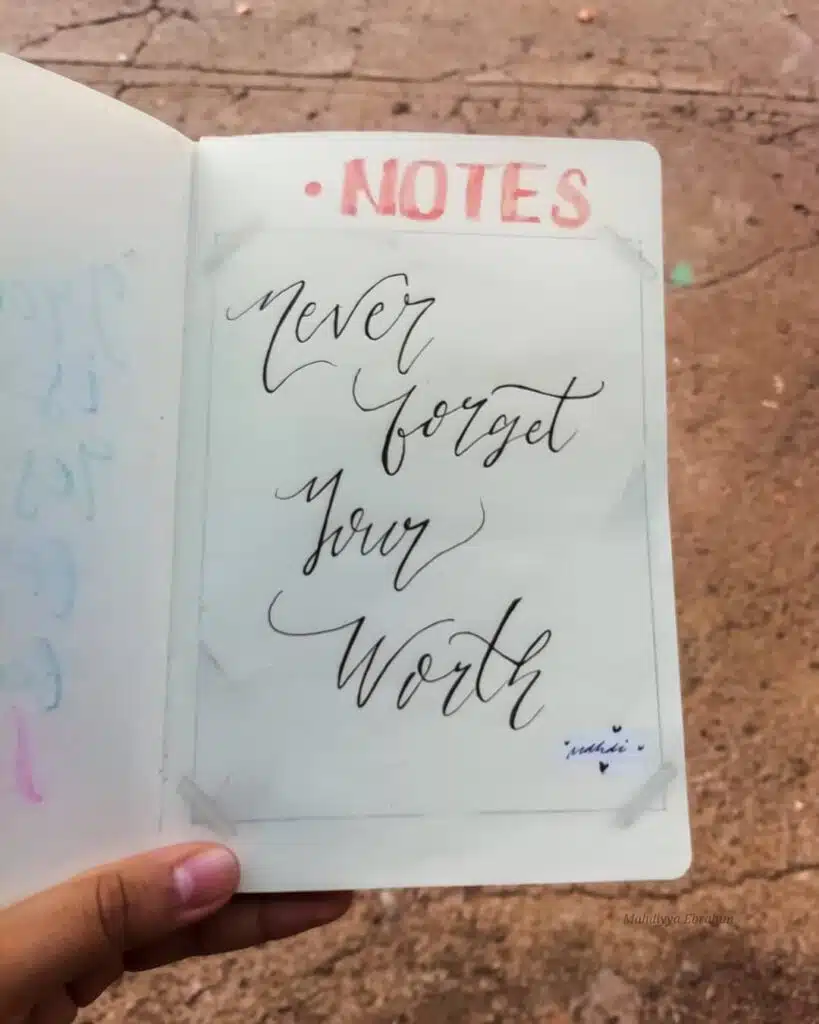 • NOTES
Never
forget
Your
Worth
Mahdiyya Ebrahim